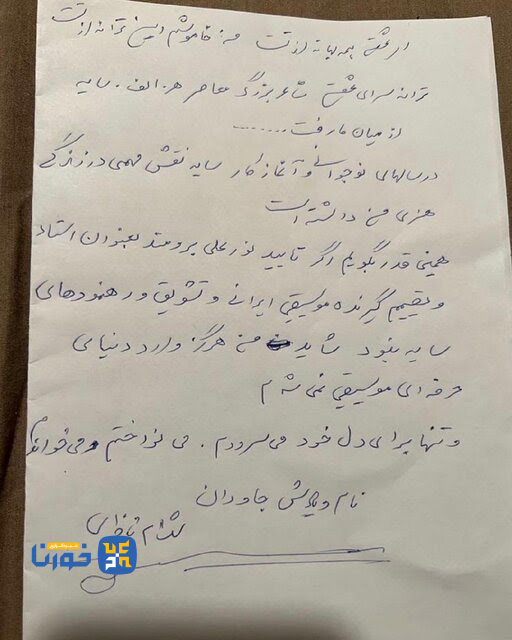 ای عشق همه بهانه از تست من خاموشم این ترانه از تست
ترانه سرای عشق شاعر بزرگ معاصر هـ. الف. سایه
از میان ما رفت ........
در سالهای نوجوانی و آغاز کار سایه نقش مهمی در زندگی
هنری من داشته است
همین قدر بگویم اگر تایید نورعلی برومند بعنوان استاد
و تصمیم گیرنده موسیقی ایرانی و تشویق و رهنمودهای
سایه نبود شاید من هرگز وارد دنیای
حرفه ای موسیقی نمی شدم
و تنها برای دل خود می سرودم. می نواختم و می خواندم
نام و یادش جاودان
شهرام ناظری
خورنا